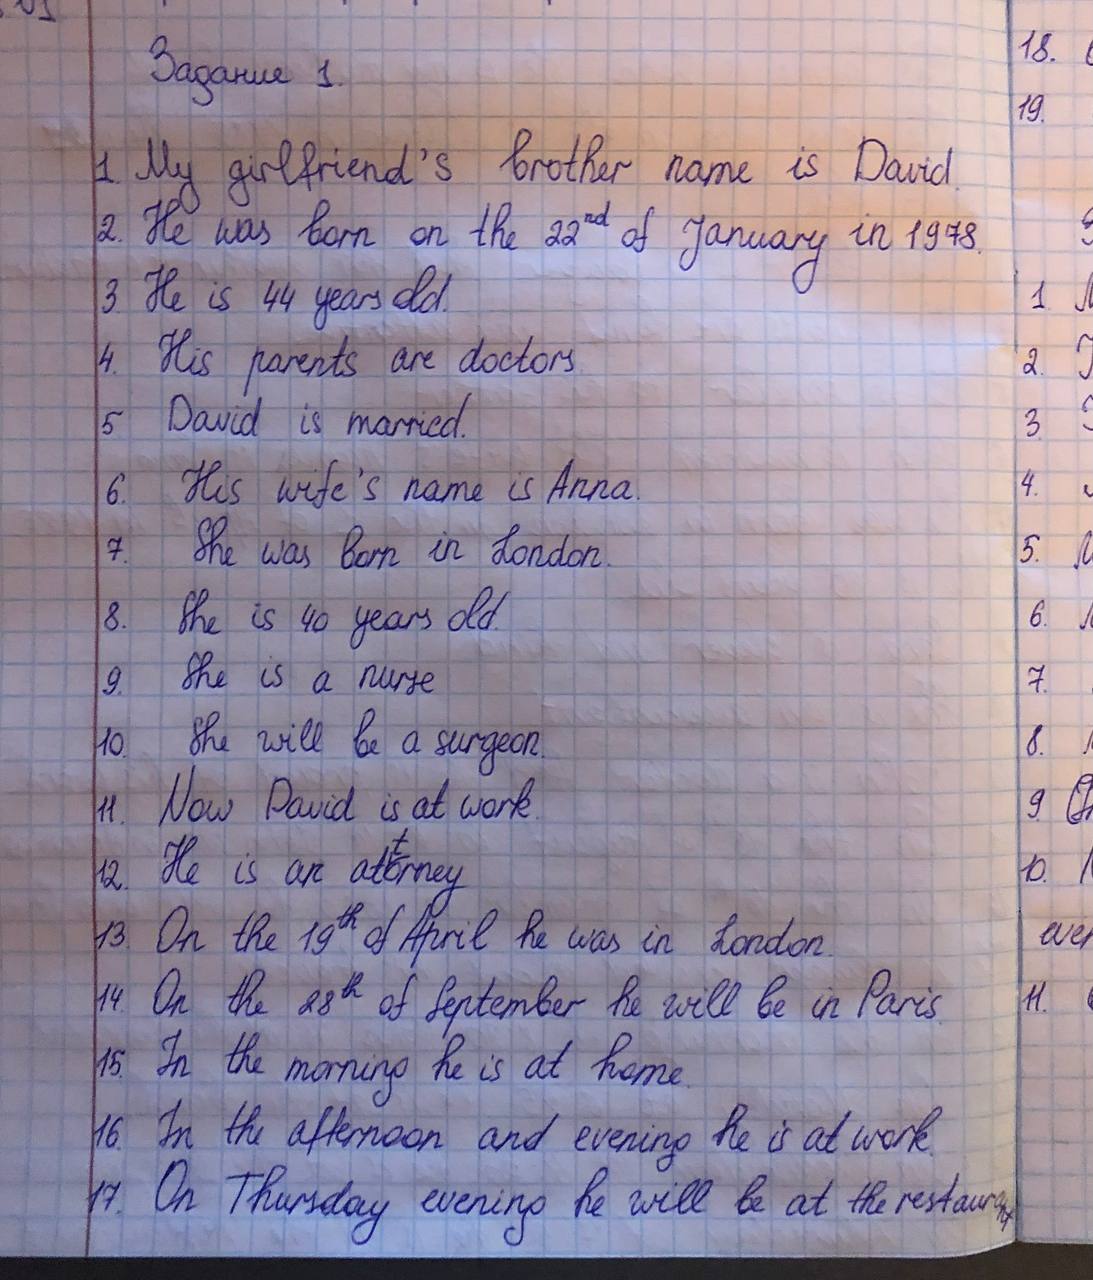 Задание 1.
1. My girlfriend's brother name is David.
2. He was born on the 22nd of January in 1978.
3 He is 44 years old.
4. His parents are doctors
5 David is married.
6. His wife's name is Anna.
7. She was born in London.
8. She is 40 years old.
9. She is a nurse
10. She will be a surgeon.
11. Now David is at work.
12. He is an attorney
13. On the 19th of April he was in London.
14. On the 28th of September he will be in Paris.
15. In the morning he is at home.
16. In the afternoon and evening he is at work.
17. On Thursday evening he will be at the restaurant
18.
19.
1.
2.
3.
4.
5.
6.
7.
8.
9.
10.
11.